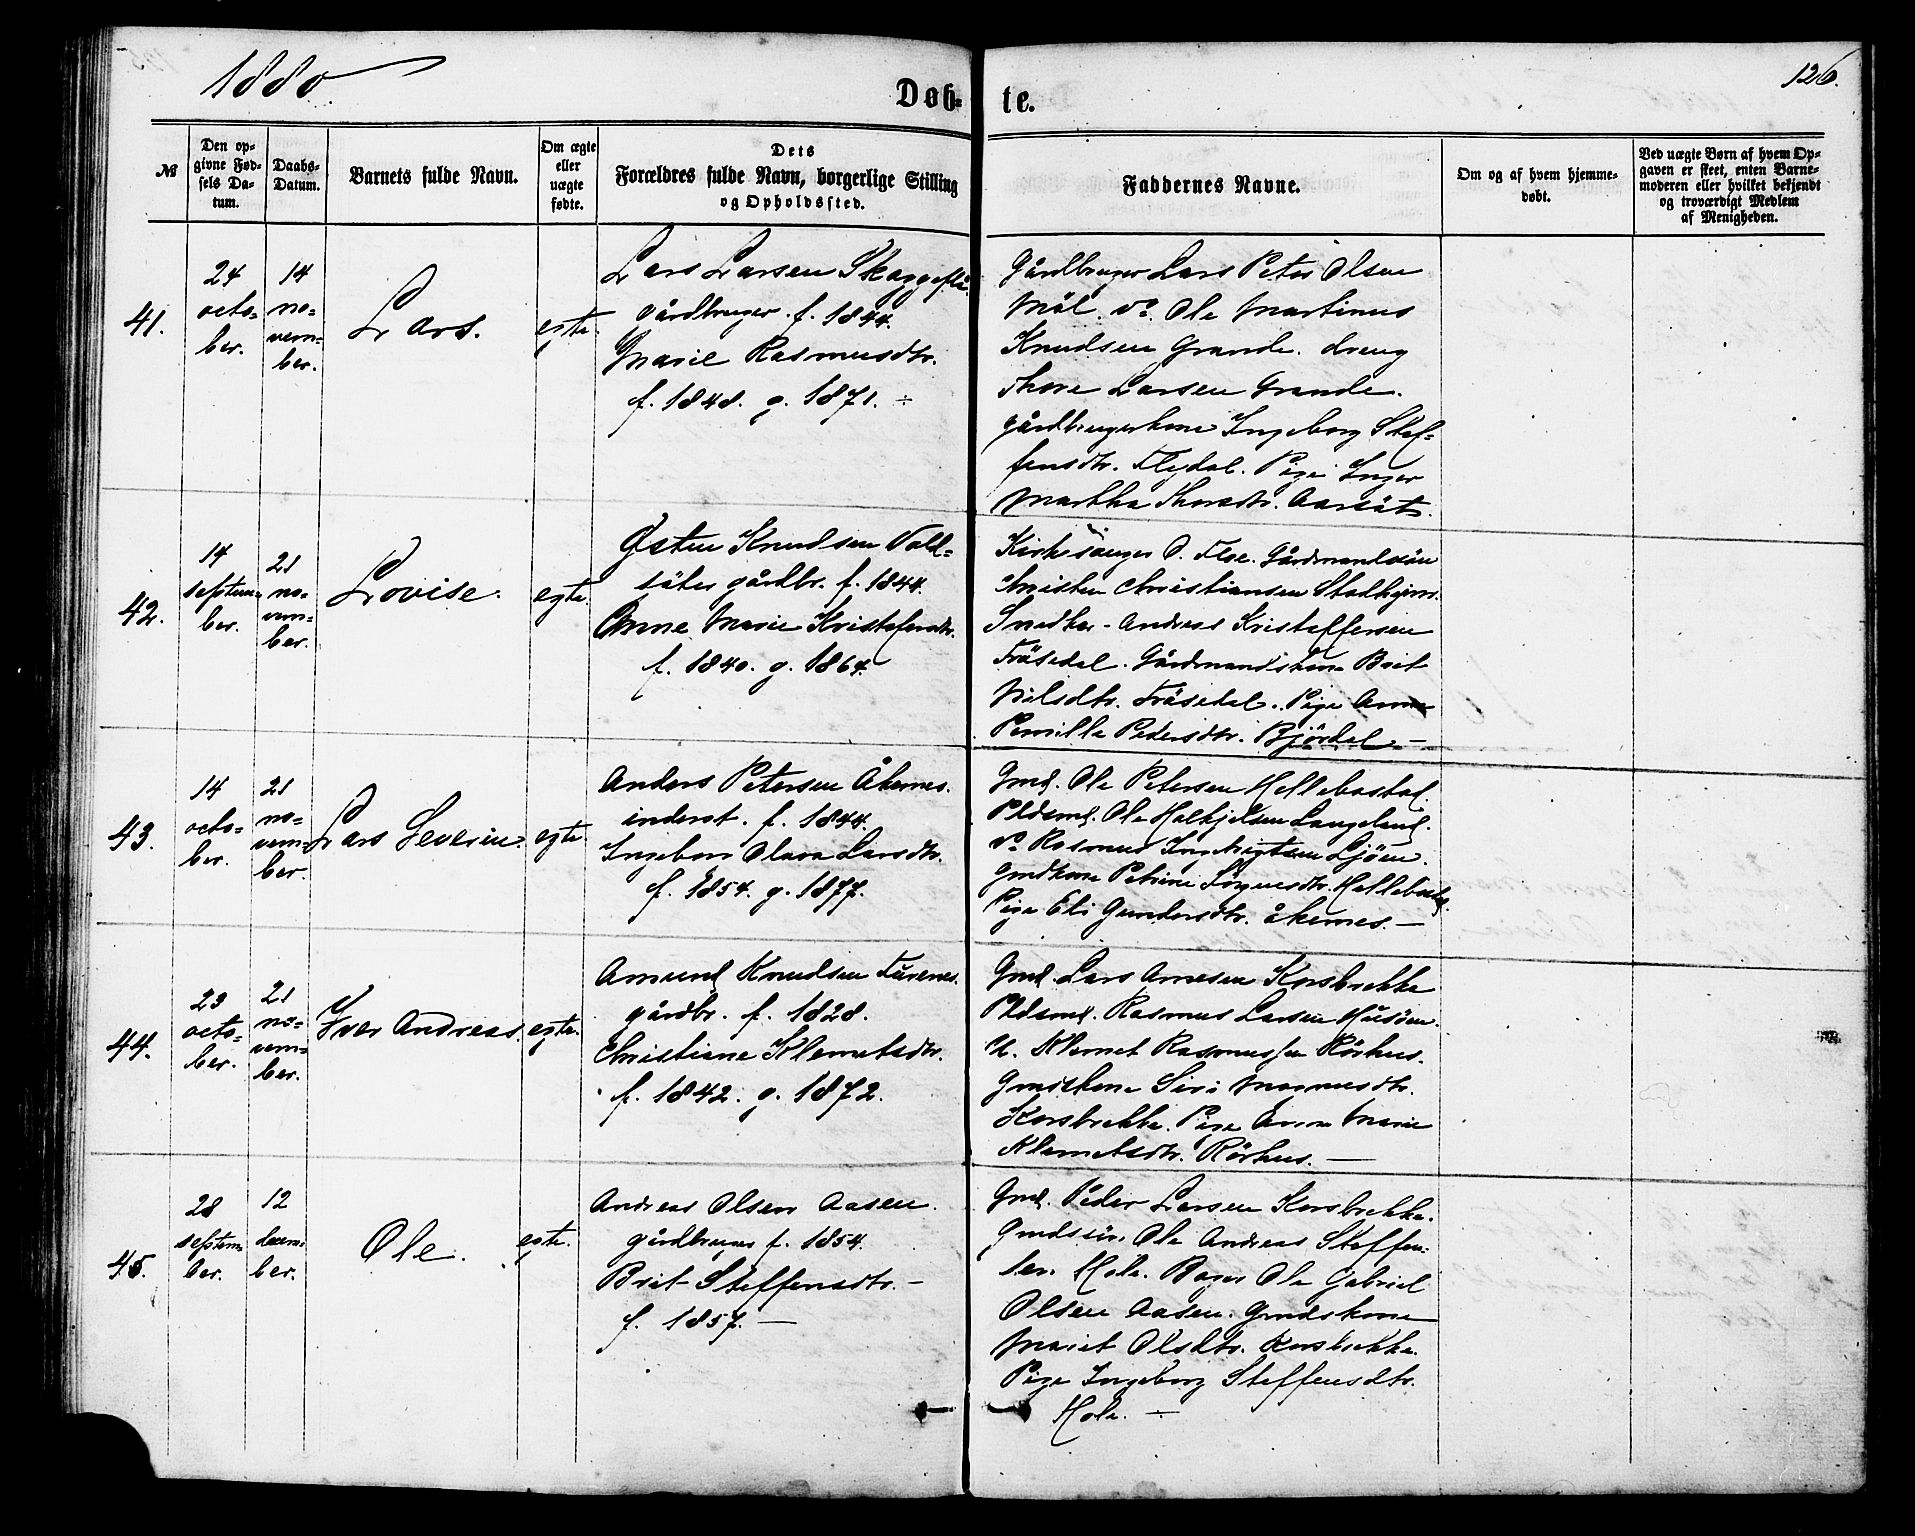 1880
Døb-
te.
126.
№
Den op-
givne Fød-
sels Da-
tum.
Daabs-
Datum.
Barnets fulde Navn.
Om ægte
eller
uægte
fødte.
Dets
Forældres fulde Navn, borgerlige Stilling
og Opholdssted.
Faddernes Navne.
Om og af hvem hjemme-
døbt.
Ved uægte Børn af hvem Op-
gaven er skeet, enten Barne-
moderen eller hvilket bekjendt
og troværdigt Medlem
af Menigheden.
41.
24
octo-
ber.
14
no-
vem-
ber.
Lars.
egte.
Lars Larsen Skaggeflå.
gårdbruger. f. 1844.
Marie Rasmusdtr.
f. 1848. g. 1871. ÷
Gårdbruger Lars Peter Olsen
Möl. do Ole Martinus
Knudsen Grande. dreng
Thore Larsen Grande.
gårdbrugerkone Ingeborg Stef-
fensdtr. Flydal. Pige Inger
Martha Thoredtr. Aarsät.
42.
14
septem-
ber.
21
no-
vem-
ber.
Lovise.
egte.
Østen Knudsen Vold-
säter gårdbr. f. 1844.
Anne Marie Kristofersdtr.
f. 1840. g. 1864.
Kirkesanger O. Floe. Gårdmandssön
Christen Christiansen Stadheim.
Snedker Andreas Kristoffersen
Fråsedal. Gårdmandskone Brit
Nilsdtr. Fråsedal. Pige Anne
Pernille Pedersdtr. Björdal. —
43.
14
octo-
ber.
21
no-
vem-
ber.
Lars Severin.
egte
Anders Petersen Åkernes.
inderst. f. 1844.
Ingeborg Olava Larsdtr.
f. 1854. g. 1877.
Gmd. Ole Petersen Hellebostad.
Pldsmd. Ole Halkjelsen Langeland.
do Rasmus Ingebrigtsen Ljöen.
Gmdkone Petrine Jörgensdtr. Hellebostad.
Pige Eli Gundersdtr. åkernes. —
44.
23
octo-
ber.
21
no-
vem-
ber.
Iver Andreas.
egte.
Amund Knudsen Furenes.
gårdbr. f. 1828.
Christiane Klemetsdtr.
f. 1842. g. 1872.
Gmd. Lars Arnesen Korsbrekke
Pldsmd. Rasmus Larsen Husöen.
Klemet Rasmussen Rörhus.
Gmdskone Siri Magnusdtr.
Korsbrekke. Pige Anne Marie
Klemetsdtr. Rörhus. —
45.
28
septem-
ber.
12
decem-
ber.
Ole.
egte.
Andreas Olsen Aasen.
gårdbruger f. 1854.
Brit Steffensdtr. —
f. 1857. —
Gmd. Peder Larsen Korsbrekke.
Gmdssön. Ole Andreas Steffen-
sen. Hole. Bager Ole Gabriel
Olsen Aasen. Gmdskone
Marit Olsdtr. Korsbrekke.
Pige Ingeborg Steffensdtr.
Hole. —